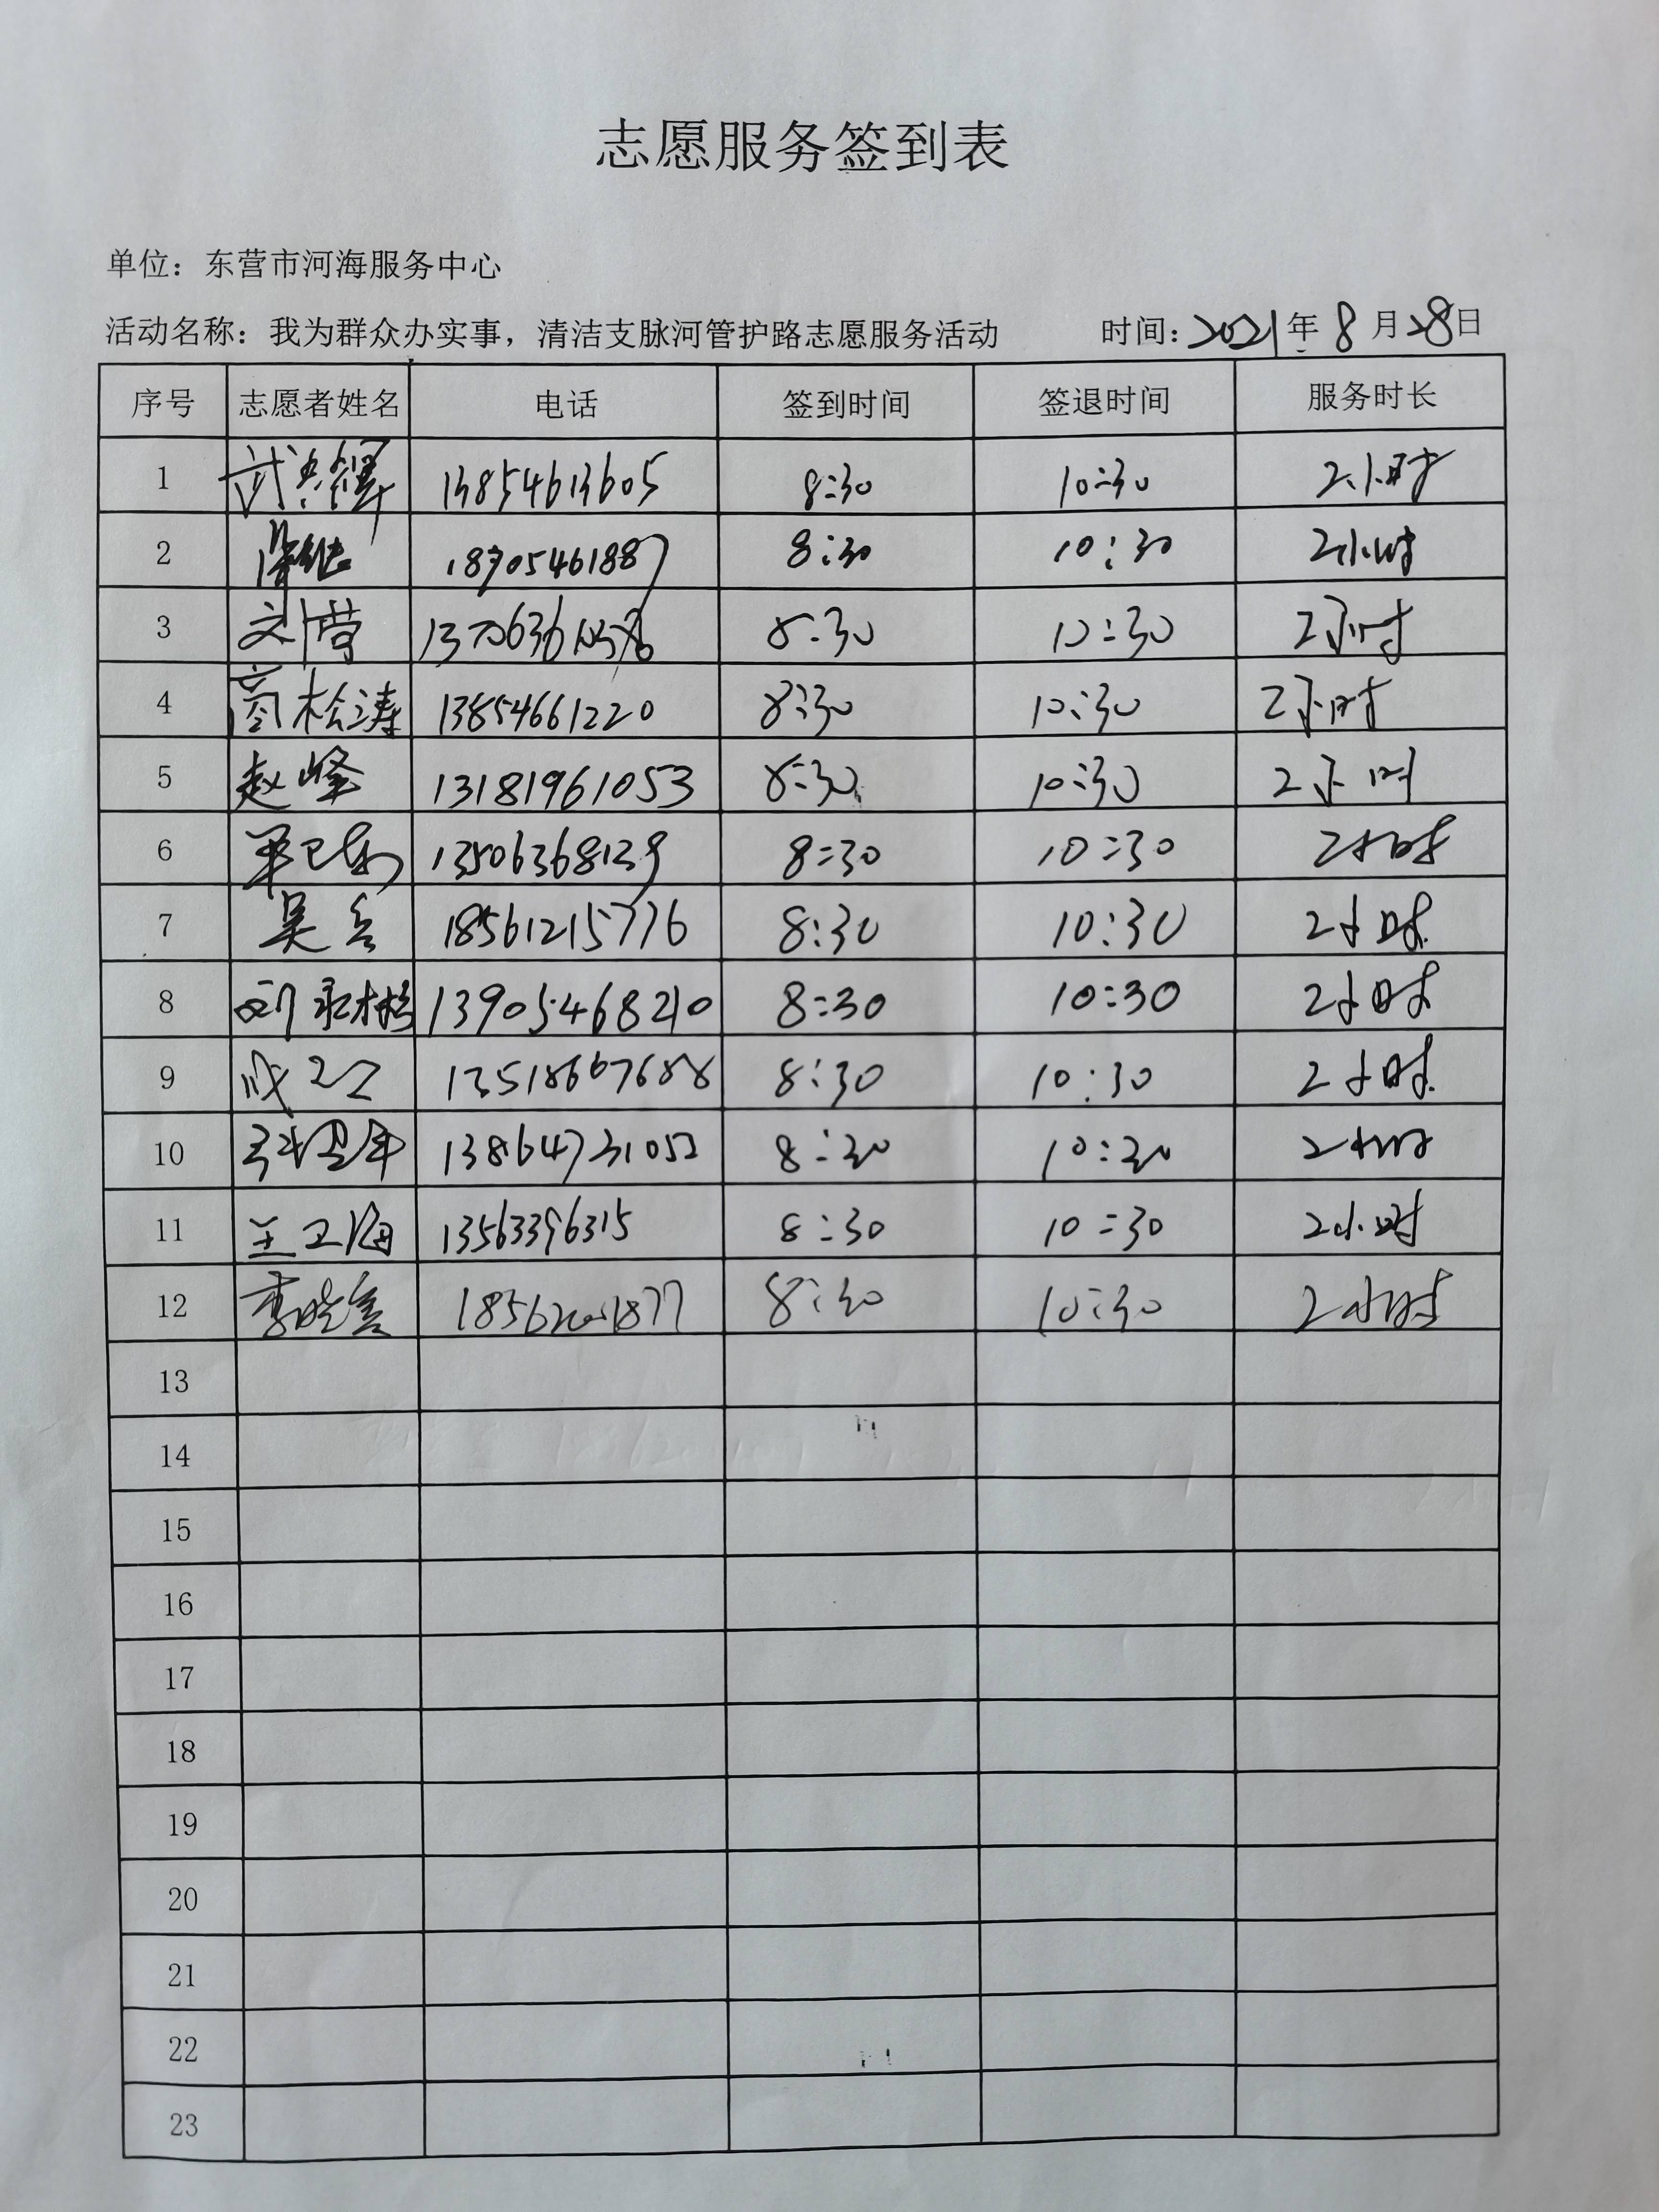 志愿服务签到表
单位：东营市河海服务中心
活动名称：我为群众办实事，清洁支脉河管护路志愿服务活动 时间：2021年8月28日
序号 志愿者姓名 电话 签到时间 签退时间 服务时长
1 13854613605 8:30 10:30 2小时
2 18905461887 8:30 10:30 2小时
3 刘营 8:30 10:30 2小时
4 高松涛 13854661220 8:30 10:30 2小时
5 赵峰 13181961053 8:30 10:30 2小时
6 13506368139 8:30 10:30 2小时
7 吴兵 18561215776 8:30 10:30 2小时
8 13905468210 8:30 10:30 2小时
9 8:30 10:30 2小时
10 8:30 10:30 2小时
11 王卫海 13563396315 8:30 10:30 2小时
12 8:30 10:30 2小时
13
14
15
16
17
18
19
20
21
22
23